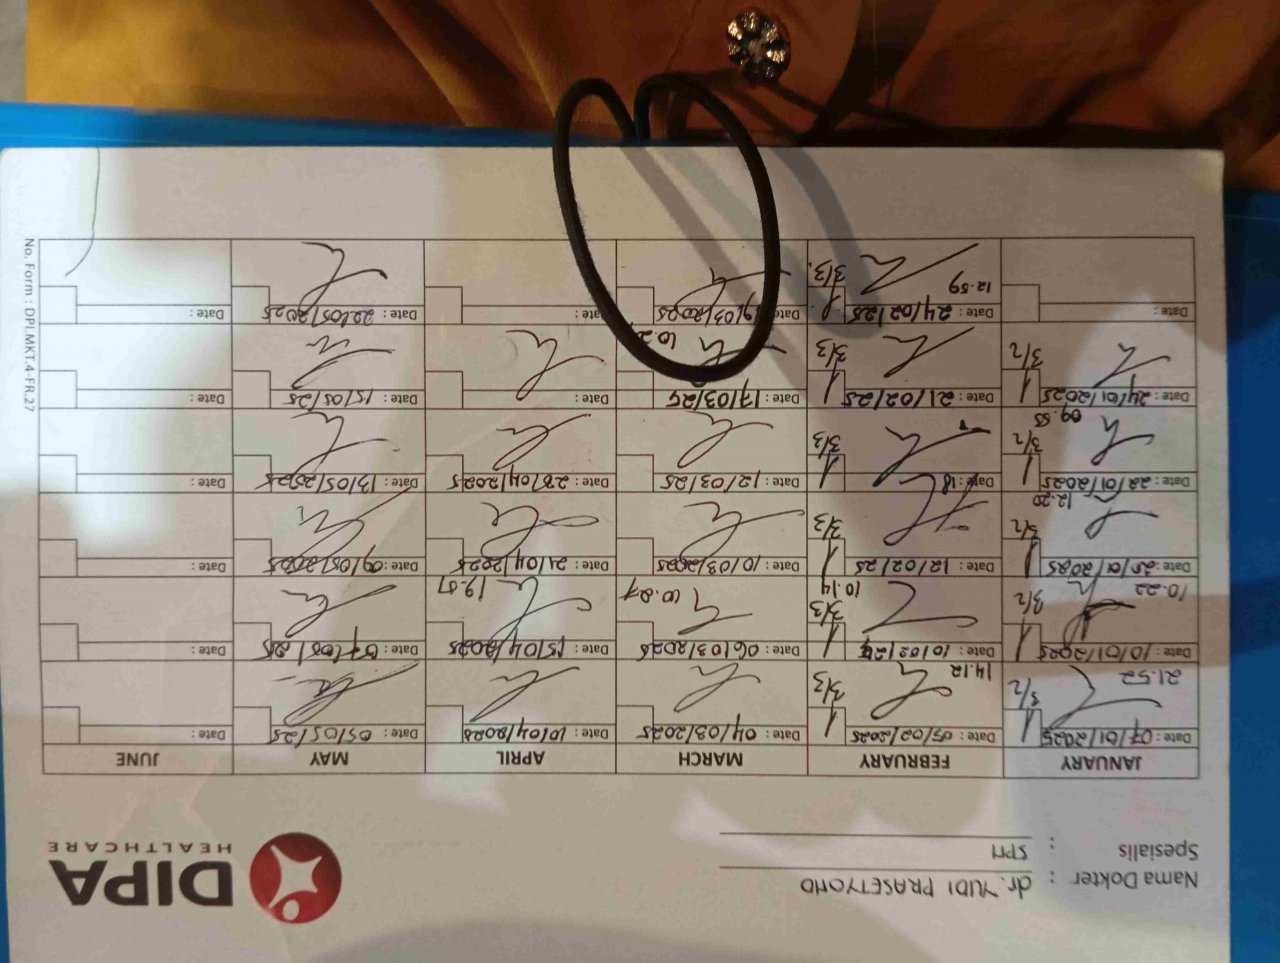 Nama Dokter : dr. YUDI PRASETYONO
Spesialis : SPM
DIPA
HEALTHCARE
JANUARY FEBRUARY MARCH APRIL MAY JUNE
Date: 07/01/2025 Date: 05/02/2025 Date: 04/03/2025 Date: 10/04/2025 Date: 05/05/25 Date:
21.52 3/2 14.12 3/3
Date: 10/01/2025 Date: 10/02/25 Date: 06/03/2025 Date: 15/04/2025 Date: 07/05/25 Date:
10.22 3/2 10.14 3/3 10.27 19.57
Date: 20/01/2025 Date: 12/02/25 Date: 10/03/2025 Date: 21/04/2025 Date: 09/05/2025 Date:
12.20 3/2 3/3
Date: 22/01/2025 Date: 18 Date: 12/03/25 Date: 28/04/2025 Date: 13/05/2025 Date:
09.53 3/2 3/3
Date: 24/01/2025 Date: 21/02/25 Date: 17/03/25 Date: Date: 15/05/25 Date:
3/2 3/3
Date: Date: 24/02/25 Date: 19/03/2025 Date: Date: 22/05/2025 Date:
12.59 3/3
No. Form : DPI.MKT.4-FR.27